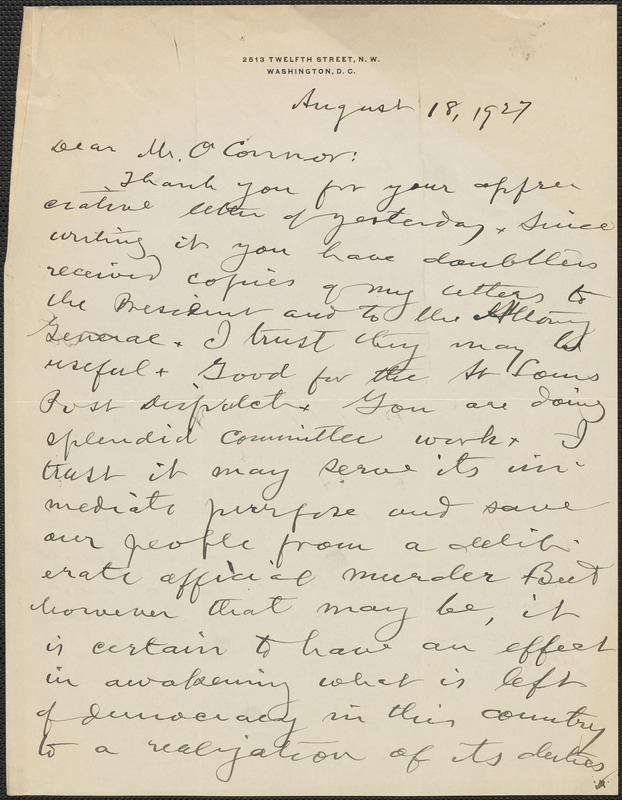 2513 TWELFTH STREET, N. W.
WASHINGTON, D. C.
August 18, 1927
Dear Mr. O'Connor:
Thank you for your appre
ciative letter of yesterday x Since
writing it you have doubtless
received copies of my letters to
the President and to the Attorney
General x I trust they may be
useful x Good for the St Louis
Post Dispatch x You are doing
splendid committee work x I
trust it may serve its im-
mediate purpose and save
our people from a delib-
erate official murder But
however that may be, it
is certain to have an effect
in awakening what is left
of democracy in this country
to a realization of its duties x